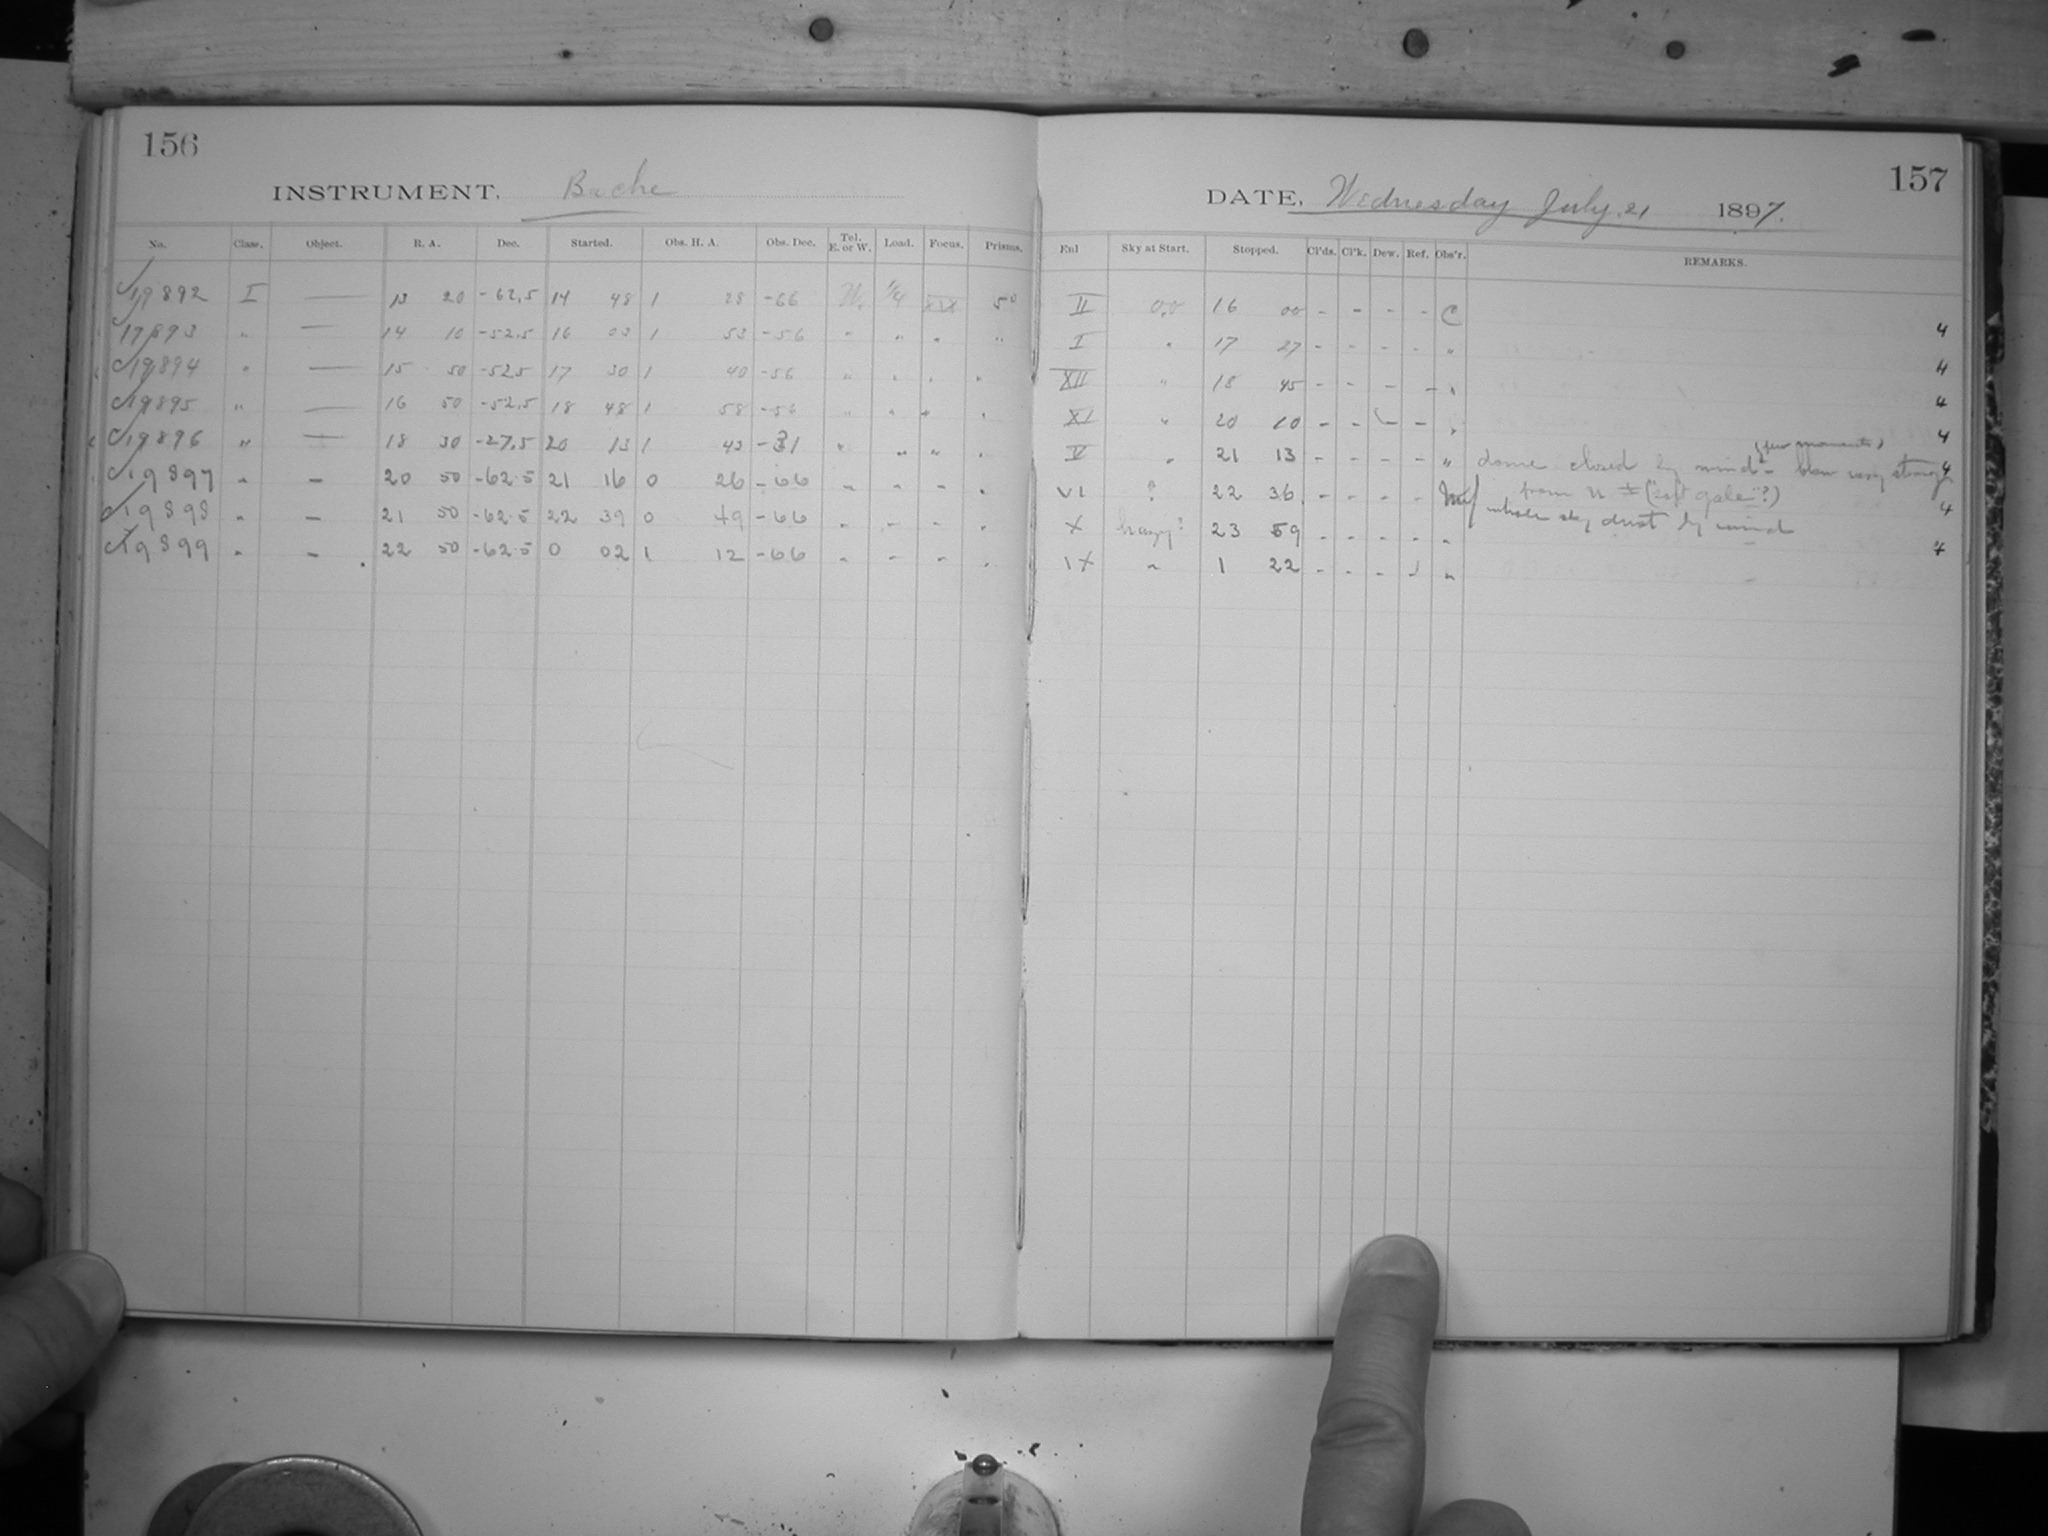 156
INSTRUMENT. Bache
No. Class. Object. R. A. Dec. Started. Obs. H. A. Obs. Dec. Tel. E. or W. Load. Focus. Prisms.
19892 I — 13 20 -62.5 14 48 1 28 -66 W. 1/4 XIX 5°
19893 " — 14 10 -52.5 16 03 1 53 -56 " " " "
19894 " — 15 50 -52.5 17 30 1 40 -56 " " " "
19895 " — 16 50 -52.5 18 48 1 58 -56 " " " "
19896 " — 18 30 -27.5 20 13 1 43 -31 " " " "
19897 " — 20 50 -62.5 21 16 0 26 -66 " " " "
19898 " — 21 50 -62.5 22 39 0 49 -66 " " " "
19899 " — 22 50 -62.5 0 02 1 12 -66 " " " "
157
DATE, Wednesday July. 21 1897.
Enl Sky at Start. Stopped. Cl'ds. Cl'k. Dew. Ref. Obs'r. REMARKS.
II 0,0 16 00 - - - - C
I " 17 27 - - - - " 4
XII " 18 45 - - - - " 4
XI " 20 10 - - - - " 4
V " 21 13 - - - - " dome closed by wind - blew very strong (few moments) 4
VI ? 22 36 - - - - from N ± ("soft gale"?) 4
X hazy? 23 59 - - - - " whole sky dust by wind 4
IX " 1 22 - - - - " 4